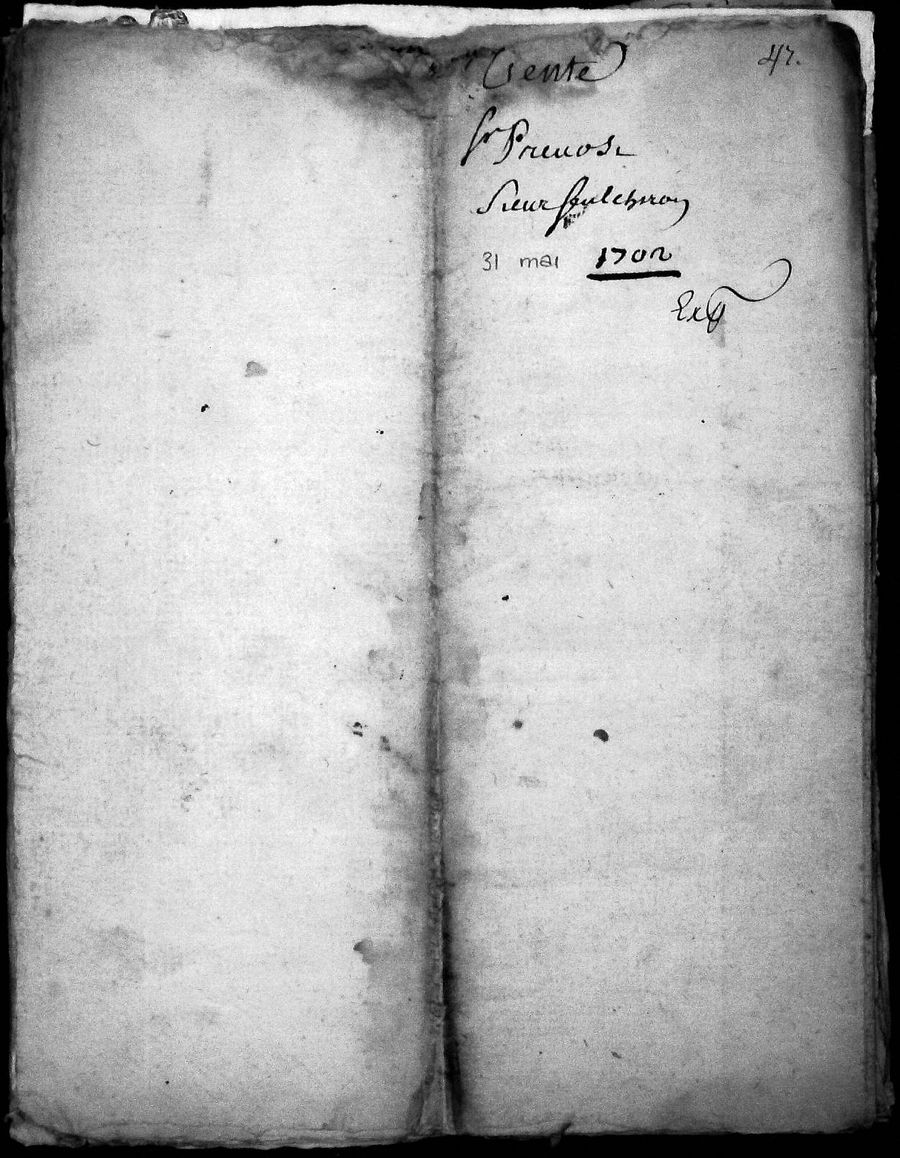 Vente
47.
Sr Preuost
Sieur foulchron
31 mai 1702
Ext